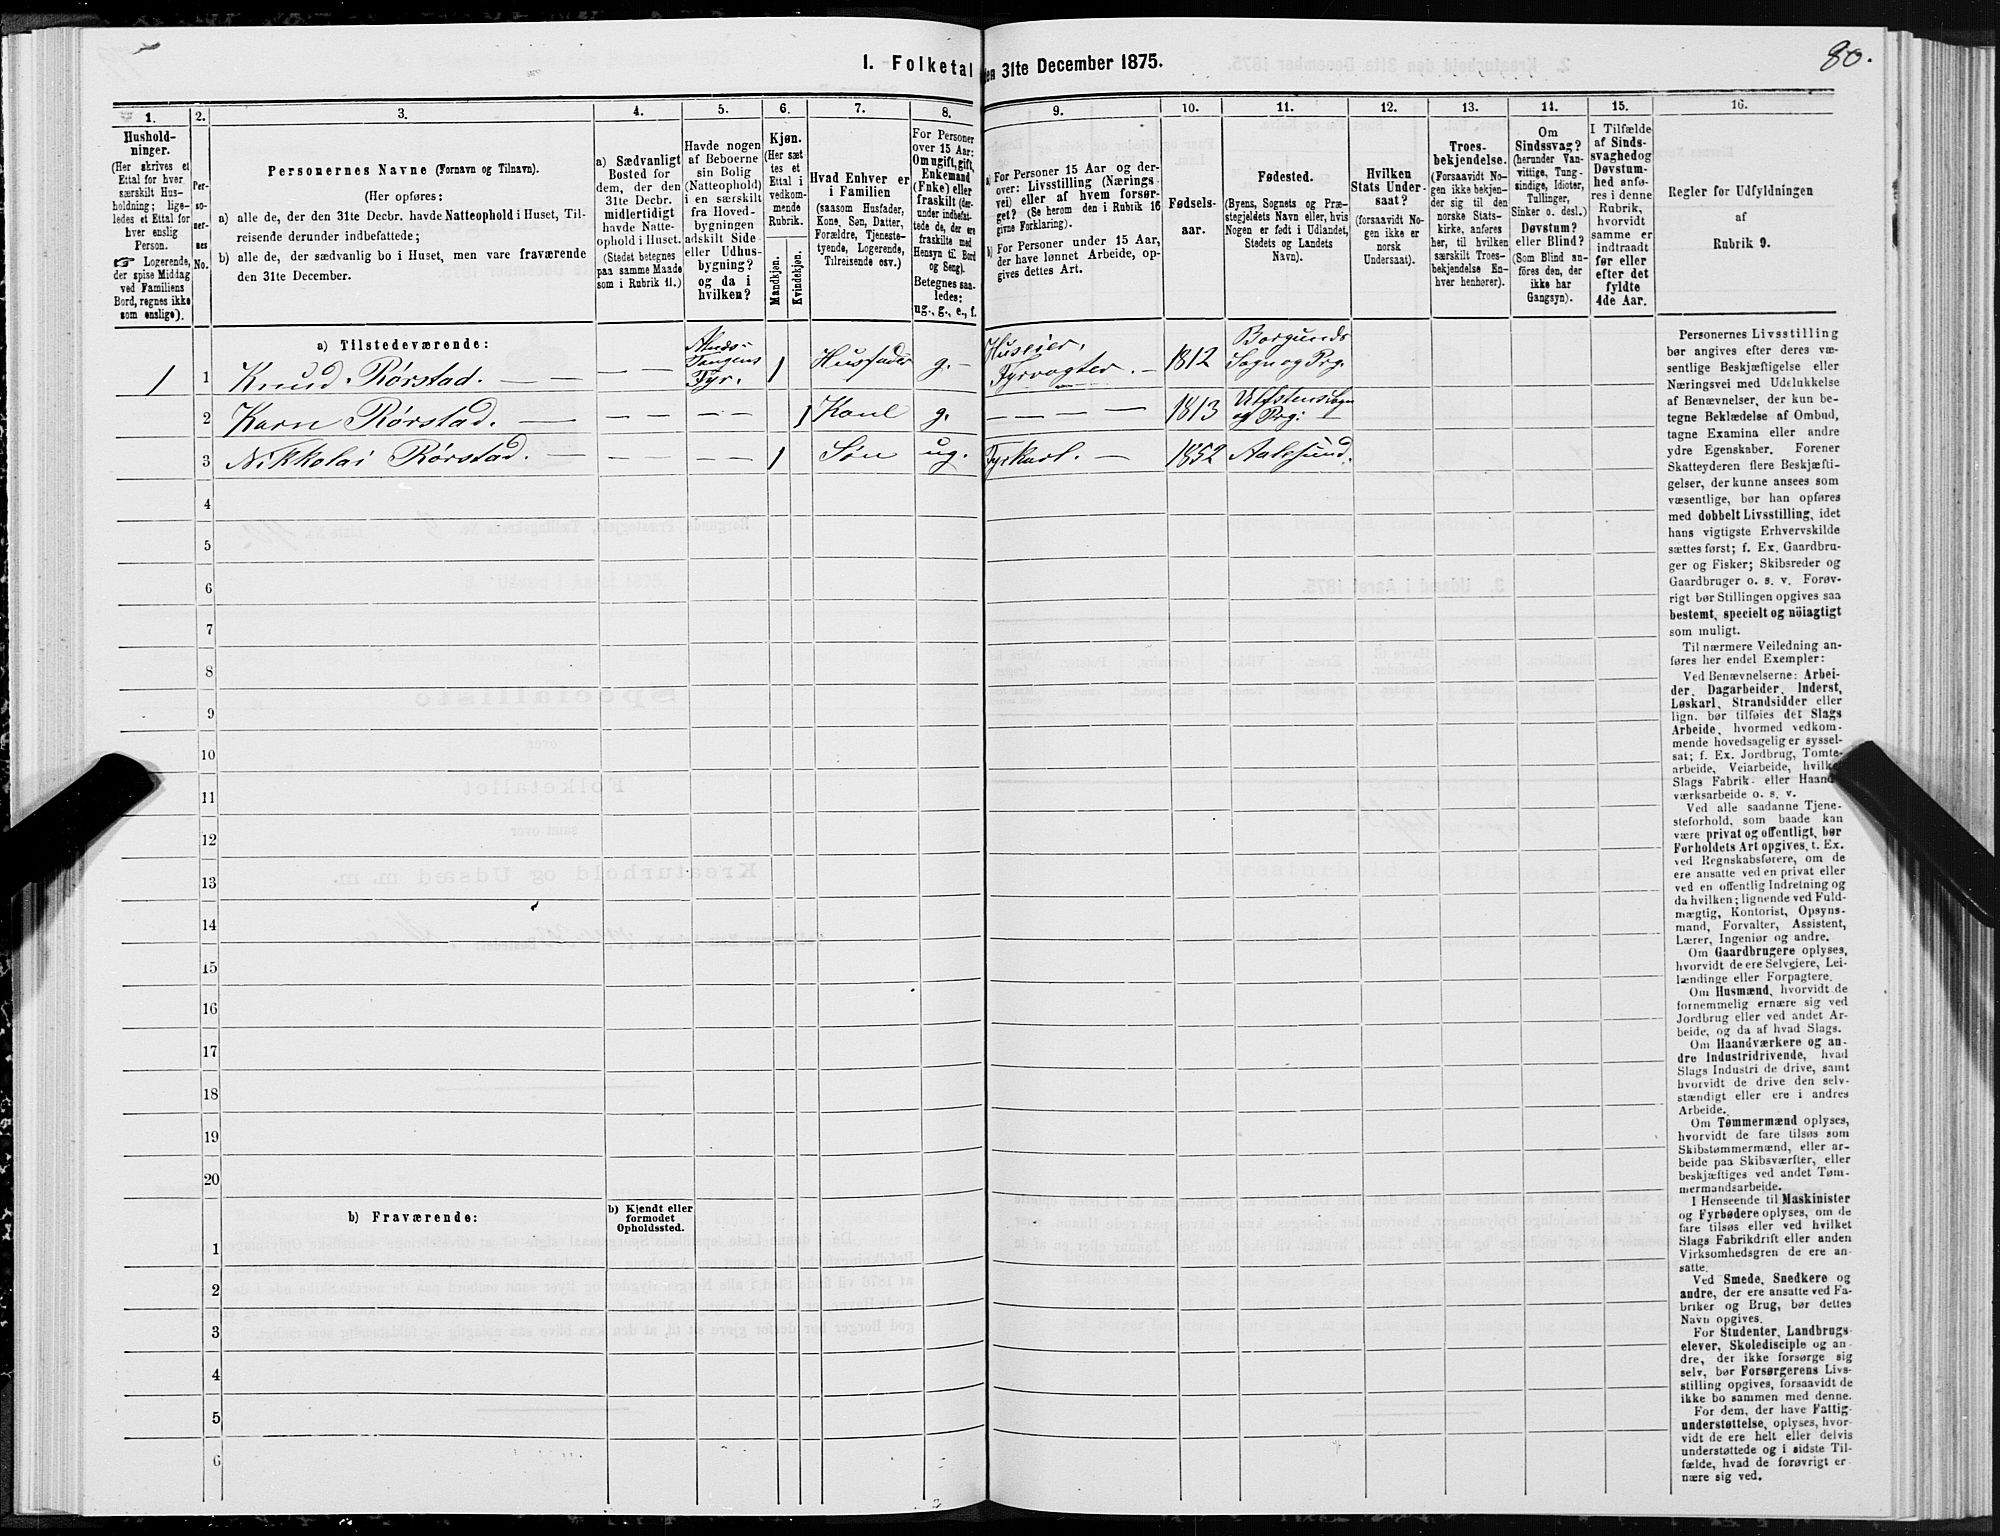 80.
I. Folketal den 31te December 1875.
1.
Hushold-
ninger.
(Her skrives et
Ettal for hver
særskilt Hus-
holdning; lige-
ledes et Ettal for
hver enslig
Person.
☞ Logerende,
der spise Middag
ved Familiens
Bord, regnes ikke
som enslige).
2.
Per-
so-
ner-
nes
No.
3.
Personernes Navne (Fornavn og Tilnavn).
(Her opføres:
a) alle de, der den 31te Decbr. havde Natteophold i Huset, Til-
reisende derunder indbefattede;
b) alle de, der sædvanlig bo i Huset, men vare fraværende
den 31te December.
4.
a) Sædvanligt
Bosted for
dem, der den
31te Decbr.
midlertidigt
havde Natte-
ophold i Huset.
(Stedet betegnes
paa samme Maade
som i Rubrik 11.)
5.
Havde nogen
af Beboerne
sin Bolig
(Natteophold)
i en særskilt
fra Hoved-
bygningen
adskilt Side
eller Udhus-
bygning?
og da i
hvilken?
6.
Kjøn.
(Her sæt
tes et
Ettal i
vedkom-
mende
Rubrik.
Mandkjøn.
Kvindekjøn.
7.
Hvad Enhver er
i Familien
(saasom Husfader,
Kone, Søn, Datter,
Forældre, Tjeneste-
tyende, Logerende,
Tilreisende osv.)
8.
For Personer
over 15 Aar:
Om ugift, gift,
Enkemand
(Enke) eller
fraskilt (der-
under indbefat-
tede de, der ere
fraskilte med
Hensyn til Bord
og Seng).
Betegnes saa-
ledes:
ug., g., e., f.
9.
a) For Personer 15 Aar og der-
over: Livsstilling (Nærings-
vei) eller af hvem forsør-
get? (Se herom den i Rubrik 16
givne Forklaring).
b) For Personer under 15 Aar,
der have lønnet Arbeide, op-
gives dettes Art.
10.
Fødsels-
aar.
11.
Fødested.
(Byens, Sognets og Præ-
stegjeldets Navn eller, hvis
Nogen er født i Udlandet,
Stedets og Landets
Navn).
12.
Hvilken
Stats Under-
saat?
(forsaavidt No-
gen ikke er
norsk
Undersaat).
13.
Troes-
bekjendelse.
(Forsaavidt No-
gen ikke bekjen-
der sig til den
norske Stats-
kirke, anføres
her, til hvilken
særskilt Troes-
bekjendelse En-
hver henhører).
14.
Om
Sindssvag?
(herunder Van-
vittige, Tung-
sindige, Idioter,
Tullinger,
Sinker o. desl.)
Døvstum?
eller Blind?
(Som Blind an-
føres den, der
ikke har
Gangsyn).
15.
I Tilfælde
af Sinds-
svaghed og
Døvstum-
hed anfø-
res i denne
Rubrik,
hvorvidt
samme er
indtraadt
før eller
efter det
fyldte
4de Aar.
16.
Regler for Udfyldningen
af
Rubrik 9.
a) Tilstedeværende:
1 1 Knud Rørstad. — — — — Tangens Fyr. 1 Husfader g. — Huseier, Fyrvogter. — 1812 Borgunds Sogn og Prg.
2 Karn Rørstad. — — — — — 1 Kone g. — — — — 1813 Sogn og Prg: —
3 Nikkolai Rørstad. — — — — — 1 Søn ug. Fyrkarl. — 1852 Aalesund.
4
5
6
7
8
9
10
11
12
13
14
15
16
17
18
19
20
b) Fraværende:
b) Kjendt eller
formodet
Opholdssted.
1
2
3
4
5
6
Personernes Livsstilling
bør angives efter deres væ-
sentlige Beskjæftigelse eller
Næringsvei med Udelukkelse
af Benævnelser, der kun be-
tegne Beklædelse af Ombud,
tagne Examina eller andre
ydre Egenskaber. Forener
Skatteyderen flere Beskjæfti-
gelser, der kunne ansees som
væsentlige, bør han opføres
med dobbelt Livsstilling, idet
hans vigtigste Erhvervskilde
sættes først; f. Ex. Gaardbru-
ger og Fisker; Skibsreder og
Gaardbruger o. s. v. Forøv-
rigt bør Stillingen opgives saa
bestemt, specielt og nöiagtigt
som muligt.
Til nærmere Veiledning an-
føres her endel Exempler:
Ved Benævnelserne: Arbei-
der, Dagarbeider, Inderst,
Løskarl, Strandsidder eller
lign. bør tilføies det Slags
Arbeide, hvormed vedkom-
mende hovedsagelig er syssel-
sat; f. Ex. Jordbrug, Tomte-
arbeide, Veiarbeide, hvilket
Slags Fabrik- eller Haand-
værksarbeide o. s. v.
Ved alle saadanne Tjene-
steforhold, som baade kan
være privat og offentligt, bør
Forholdets Art opgives, t. Ex.
ved Regnskabsførere, om de
ere ansatte ved en privat eller
ved en offentlig Indretning og
da hvilken; lignende ved Fuld-
mægtig, Kontorist, Opsyns-
mand, Forvalter, Assistent,
Lærer, Ingeniør og andre.
Om Gaardbrugere oplyses,
hvorvidt de ere Selveiere, Lei-
lændinge eller Forpagtere.
Om Husmænd, hvorvidt de
fornemmelig ernære sig ved
Jordbrug eller ved andet Ar-
beide, og da af hvad Slags.
Om Haandværkere og an-
dre Industridrivende, hvad
Slags Industri de drive, samt
hvorvidt de drive den selv-
stændigt eller ere i andres
Arbeide.
Om Tømmermænd oplyses,
hvorvidt de fare tilsøs som
Skibstømmermænd, eller ar-
beide paa Skibsværfter, eller
beskjæftiges ved andet Tøm-
mermandsarbeide.
I Henseende til Maskinister
og Fyrbødere oplyses, om de
fare tilsøs eller ved hvilket
Slags Fabrikdrift eller anden
Virksomhedsgren de ere an-
satte.
Ved Smede, Snedkere og
andre, der ere ansatte ved Fa-
briker og Brug, bør dettes
Navn opgives.
For Studenter, Landbrugs-
elever, Skoledisciple og an-
dre, der ikke forsørge sig
selv, bør Forsørgerens Livs-
stilling opgives, forsaavidt de
ikke bo sammen med denne.
For dem, der have Fattig-
understøttelse, oplyses, hvor-
vidt de ere helt eller delvis
understøttede og i sidste Til-
fælde, hvad de forøvrigt er-
nære sig ved.